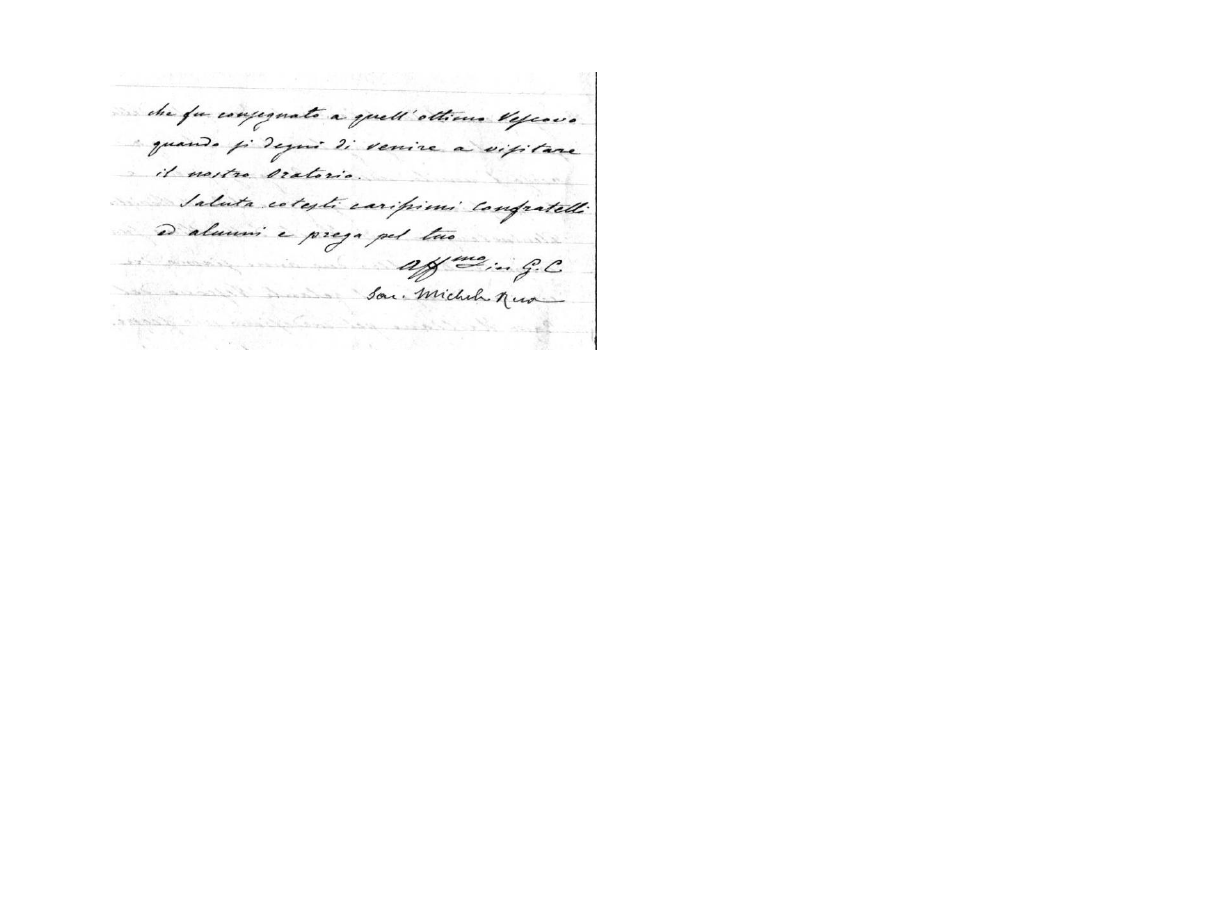 che fu consegnato a quell'ottimo Vescovo
quando si degni di venire a visitare
il nostro Oratorio.
Saluta cotesti carissimi Confratelli
ed alunni e prega pel tuo
Aff.mo in G. C
Sac. Michele Rua